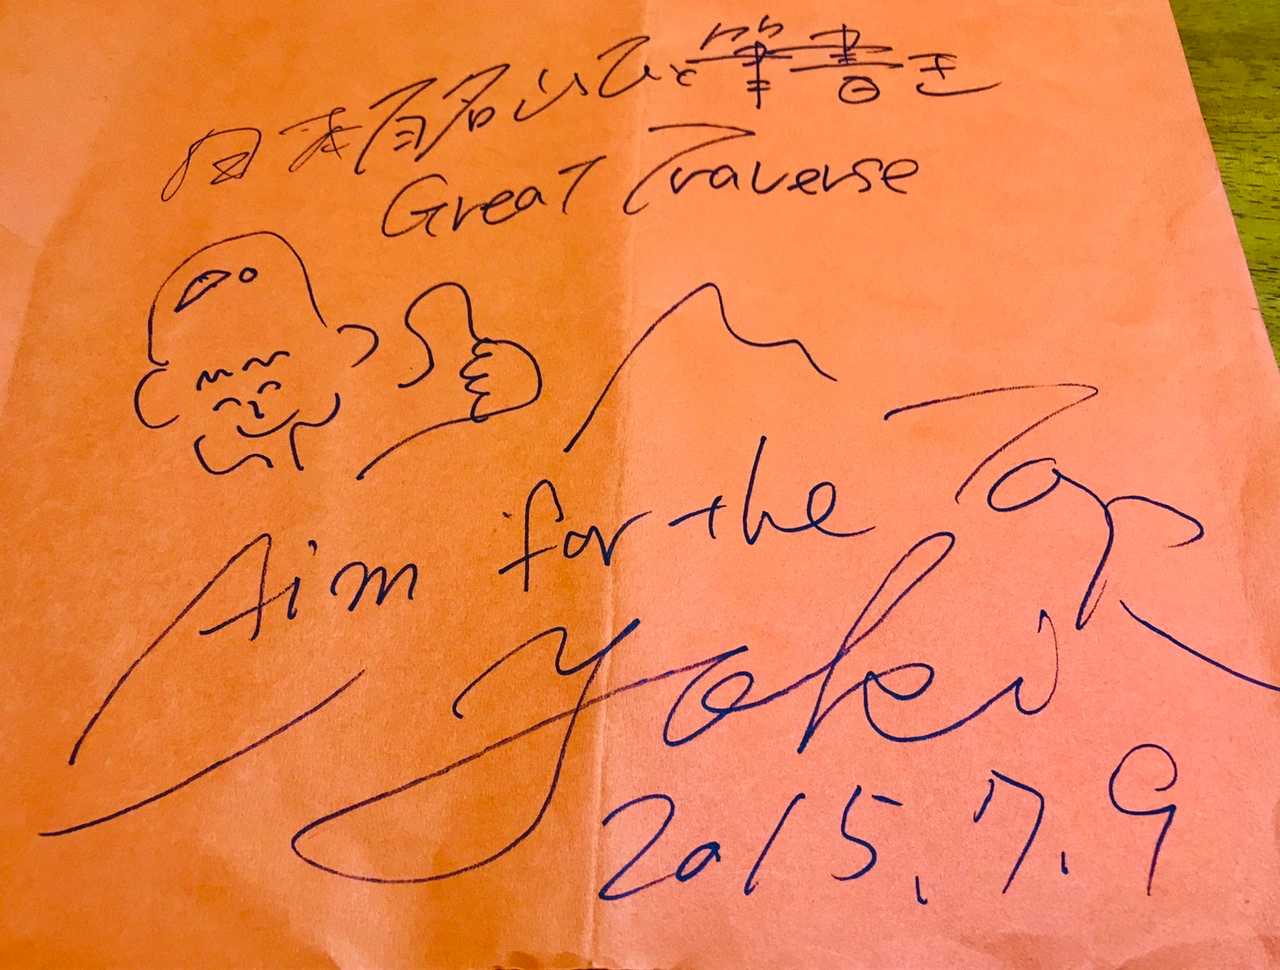 日本百名山ひと筆書き
Great Traverse
Aim for the Top
Yoki
2015.7.9